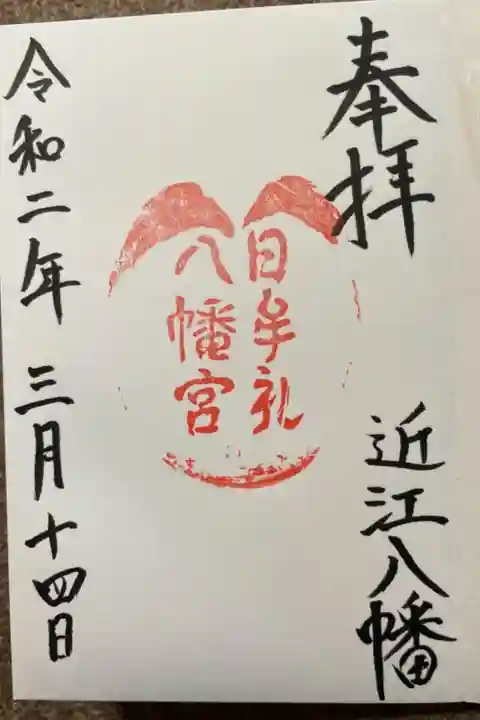 奉拝
近江八幡
日牟礼
八幡宮
令和二年 三月十四日